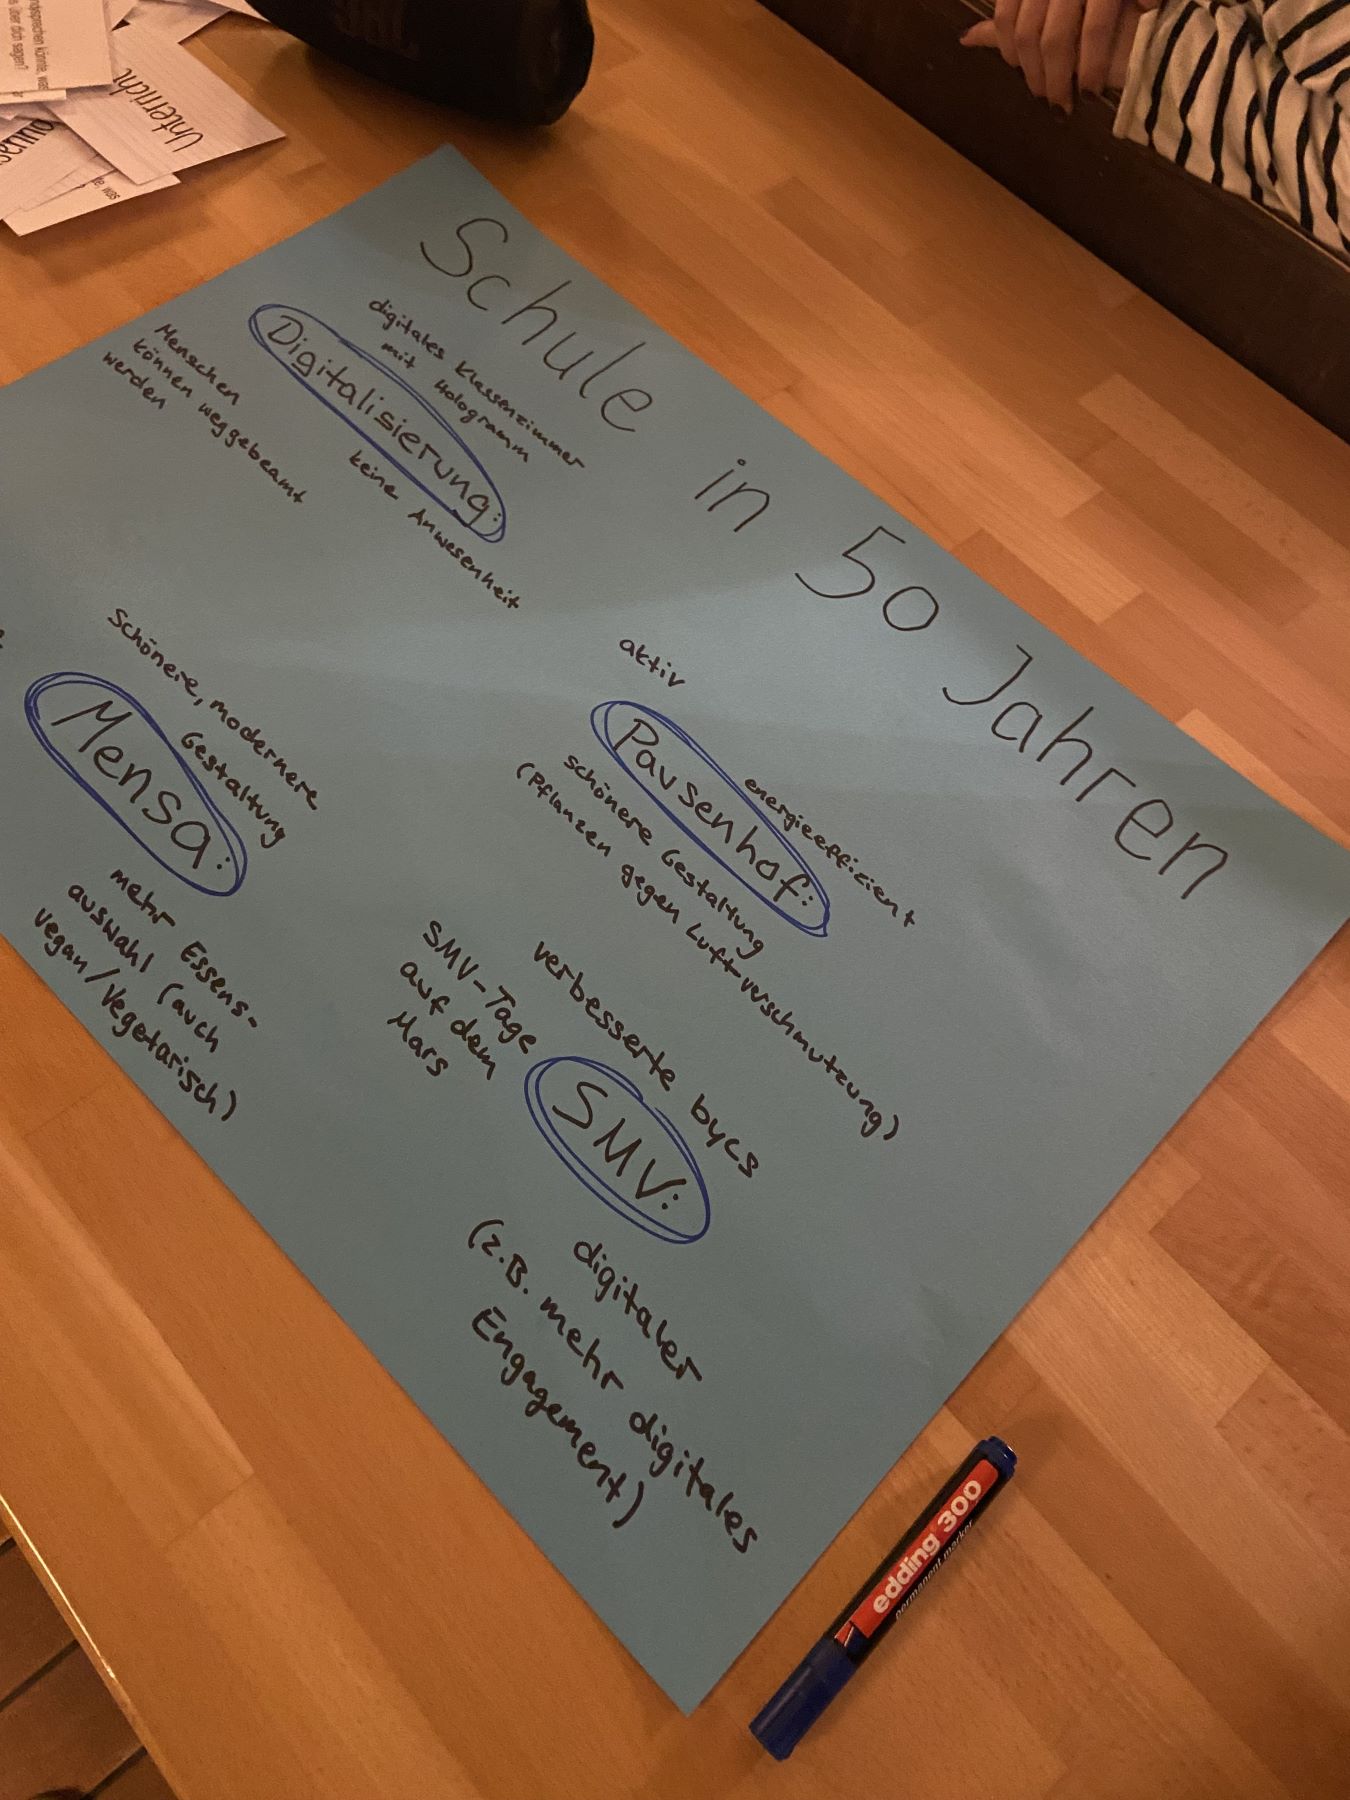 Schule in 50 Jahren
digitales Klassenzimmer
mit Hologramm
Digitalisierung:
Menschen
können weggebeamt
werden
keine Anwesenheit
aktiv
Pausenhof:
energieefficient
schönere Gestaltung
(Pflanzen gegen Luftverschmutzung)
Schönere, modernere
Gestaltung
Mensa:
mehr Essens-
auswahl (auch
vegan/Vegetarisch)
verbesserte bycs
SMV-Tage
auf dem
Mars
SMV:
digitaler
(z.B. mehr digitales
Engagement)
edding 300
permanent marker
Unterricht
über dich sagen?